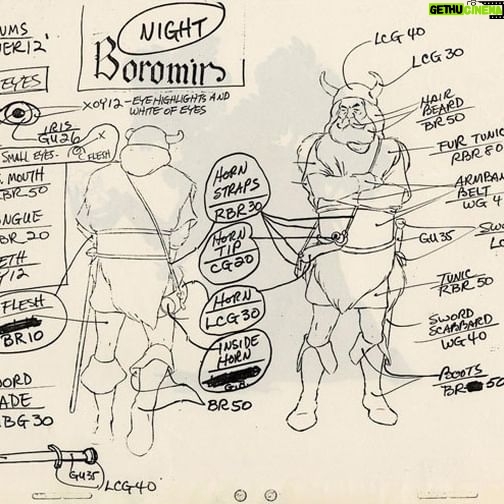 GETHUCINEMA
NIGHT
Boromir
UMS
ER12'
EYES
XOY12-EYE HIGHLIGHTS AND
WHITE OF EYES
IRIS
GU26
SMALL EYES.
X
C FLESH
MOUTH
BR50
NGUE
BR20
ETH
Y12
FLESH
BR10
ORD
ADE
BG30
GU35
LCG40
HORN
STRAPS
RBR30
HORN
TIP
CG20
HORN
LCG30
INSIDE
HORN
BR50
LCG40
LCG30
HAIR
BEARD
BR50
FUR TUNIC
RBR80
ARMBAN
BELT
WG4
GU35
SWO
LC
TUNIC
RBR50
SWORD
SCABBARD
WG40
BOOTS
BR 50